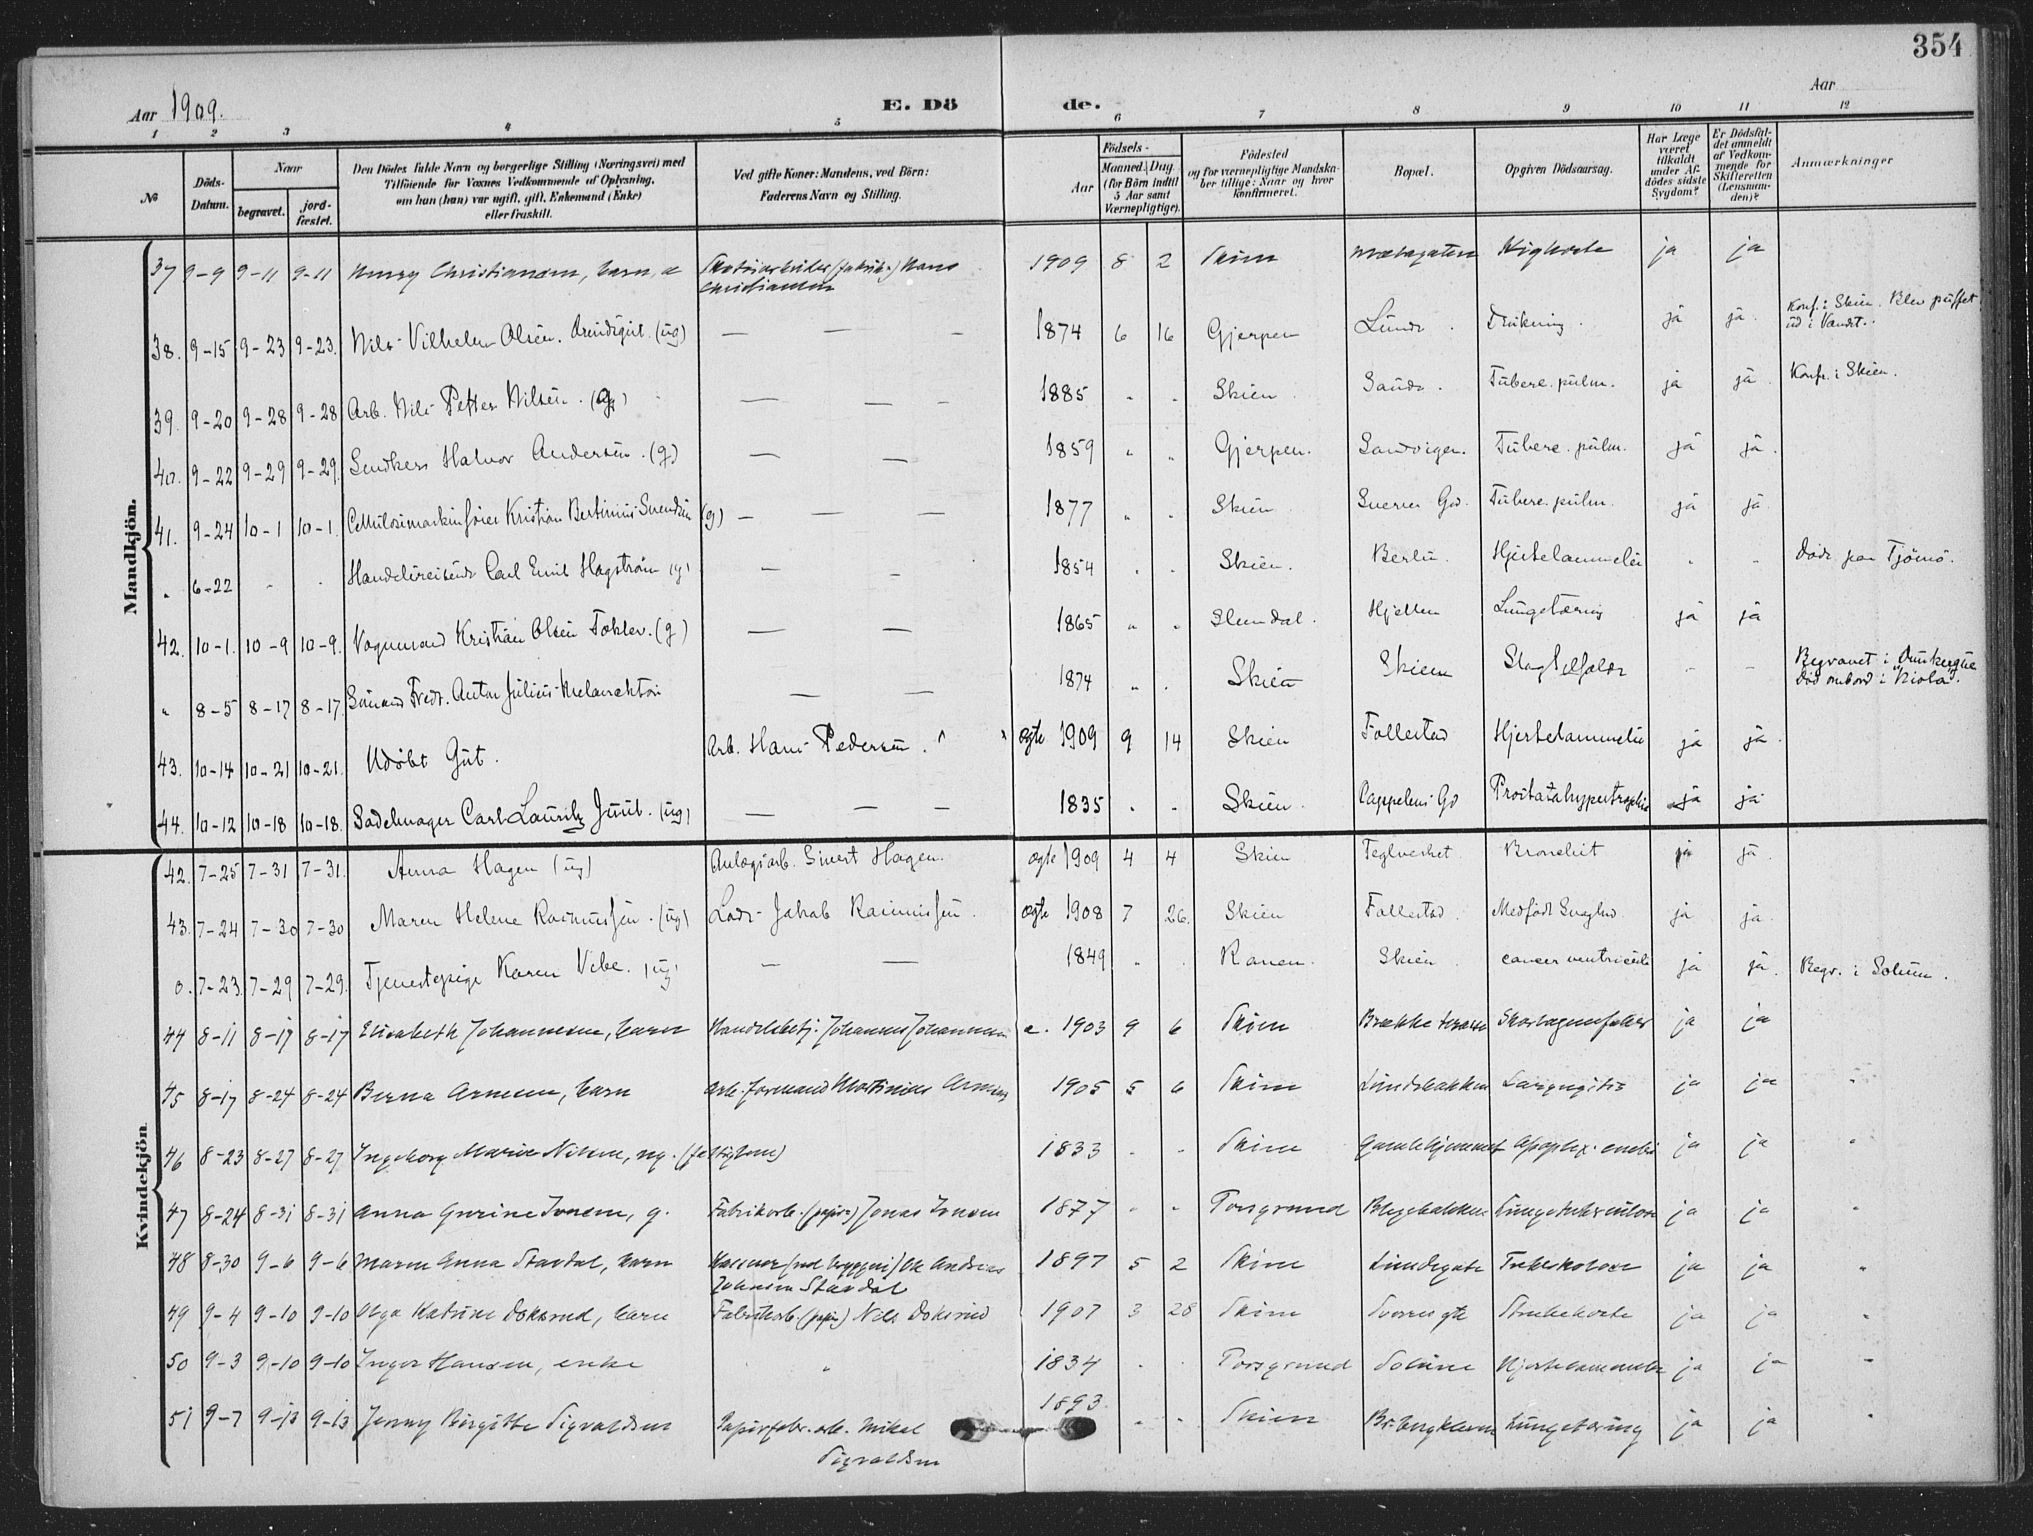 354
Aar 1909.
E. Dö
de.
Aar
1 2 3 4 5 6 7 8 9 10 11 12
№
Döds-Datum.
Naar
begravet.
jord-fæstet.
Den Dödes fulde Navn og borgerlige Stilling (Næringsvei) med
Tilföiende for Voxnes Vedkommende af Oplysning,
om hun (han) var ugift, gift, Enkemand (Enke)
eller fraskilt.
Ved gifte Koner: Mandens, ved Börn:
Faderens Navn og Stilling.
Födsels-
Aar
Maaned. Dag
(for Börn indtil
5 Aar samt
Værnepligtige).
Födested
og for værnepligtige Mandska-
ber tillige: Naar og hvor
konfirmeret.
Bopæl.
Opgiven Dödsaarsag.
Har Læge
været
tilkaldt
under Af-
dödes sidste
Sygdom?
Er Dödsfal-
det anmeldt
af Vedkom-
mende for
Skifteretten
(Lensman-
den)?
Anmærkninger
Mandkjön.
37 9-9 9-11 9-11 Henry Christiansen, barn, æ (fabrik) Hans 1909 8 2 Skien Kighoste ja ja
Christiansen
38. 9-15 9-23 9-23. Nils Vilhelm Olsen. (ug) — — — 1874 6 16 Gjerpen Lunde. Drukning. ja ja. Konf. i Skien. Blev puffet
ud i Vandet.
39. 9-20 9-28 9-28 Arb. Nils Petter Nilsen. (g) — — — 1885 Skien Tuberc. pulm. ja ja. Konf. i Skien.
40. 9-22 9-29 9-29. Halvor Andersen. (g) — — 1859 Gjerpen. Sandvigen. Tuberc. pulm. ja ja.
41. 9-24 10-1 10-1. Kristian Bertinius Svendsen (g) — — — 1877 Skien Sverres Gd. Tuberc. pulm. ja ja.
" 6-22 - - Handelsreisende Carl Emil Hagstrøm (g) — — 1854 Skien. Berlin. Hjertelammelse - - Døde paa Tjømø.
42. 10-1. 10-9 10-9. Vognmand Kristian Olsen (g) — — 1865 Slemdal. Hjellen Lungetæring ja ja
" 8-5 8-17 8-17. Sømand Fredr. Anton Julius Melanchton — — 1874 Skien Skien Slagtilfælde - - Begravet i Dunkerque
Død ombord i "Viola".
43. 10-14 10-21 10-21. Udøbt Gut. Arb. Hans Pedersen. ægte 1909 9 14 Skien Follestad Hjertelammelse ja ja.
44. 10-12 10-18 10-18. Sadelmager Carl Lauritz Juul. (ug) — — — 1835 Skien. Cappelens Gd Prostatahypertrophie ja ja
Kvindekjön
42. 7-25 7-31 7-31. Anna Hagen (ug) Anlægsarb. Sivert Hagen. ægte 1909 4 4 Skien Teglverket Bronchit ja ja.
43. 7-24 7-30 7-30 Maren Helene Rasmussen. (ug) Lods Jakob Rasmussen. ægte 1908 7 26. Skien Follestad. Medfødt Svaghed. ja ja
0. 7-23. 7-29 7-29. Tjenestepige Karen Vibe. (ug) — — 1849 Ranen. Skien. cancer ventriculi ja ja. Begr. i Solum.
44 8-11 8-17 8-17 Elisabeth Johannesen, barn Handelsbetj. Johannes Johannesen e. 1903 9 6 Skien Skarlagensfeber ja ja
45 8-17 8-24 8-24 Berna Arnesen, barn Arb. formand Martinius Arnesen 1905 5 6 Skien Lundebakken Laryngitis ja ja "
46 8-23 8-27 8-27 Ingeborg Marie Nilsen, ug. (fattiglem) 1833 - - Skien Gamlehjemmet ja ja "
47 8-24 8-31 8-31 Anna Gurine Jonsen, g. Fabrikarb. (papir) Jonas Jonsen 1877 - - Porsgrund Blegebakken Lungetuberkulose ja ja "
48 8-30 9-6 9-6 Maren Anna Stavdal, barn Ole Andreas 1897 5 2 Skien Lundegate Tuberkulose ja ja "
Johnsen Stavdal
49 9-4 9-10 9-10 Olga Katrine Doksrud, barn Fabrikarb. (papir) Nils Doksrud 1907 3 28 Skien Sverres gt Strubehoste ja ja "
50 9-3 9-10 9-10 Inger Hansen, enke " 1834 - - Porsgrund Solum Hjertelammelse ja ja "
51 9-7 9-13 9-13 Jenny Birgitte Sigvaldsen Papirfabr. arb. Mikal 1893 - - Skien Lungetæring ja ja "
Sigvaldsen